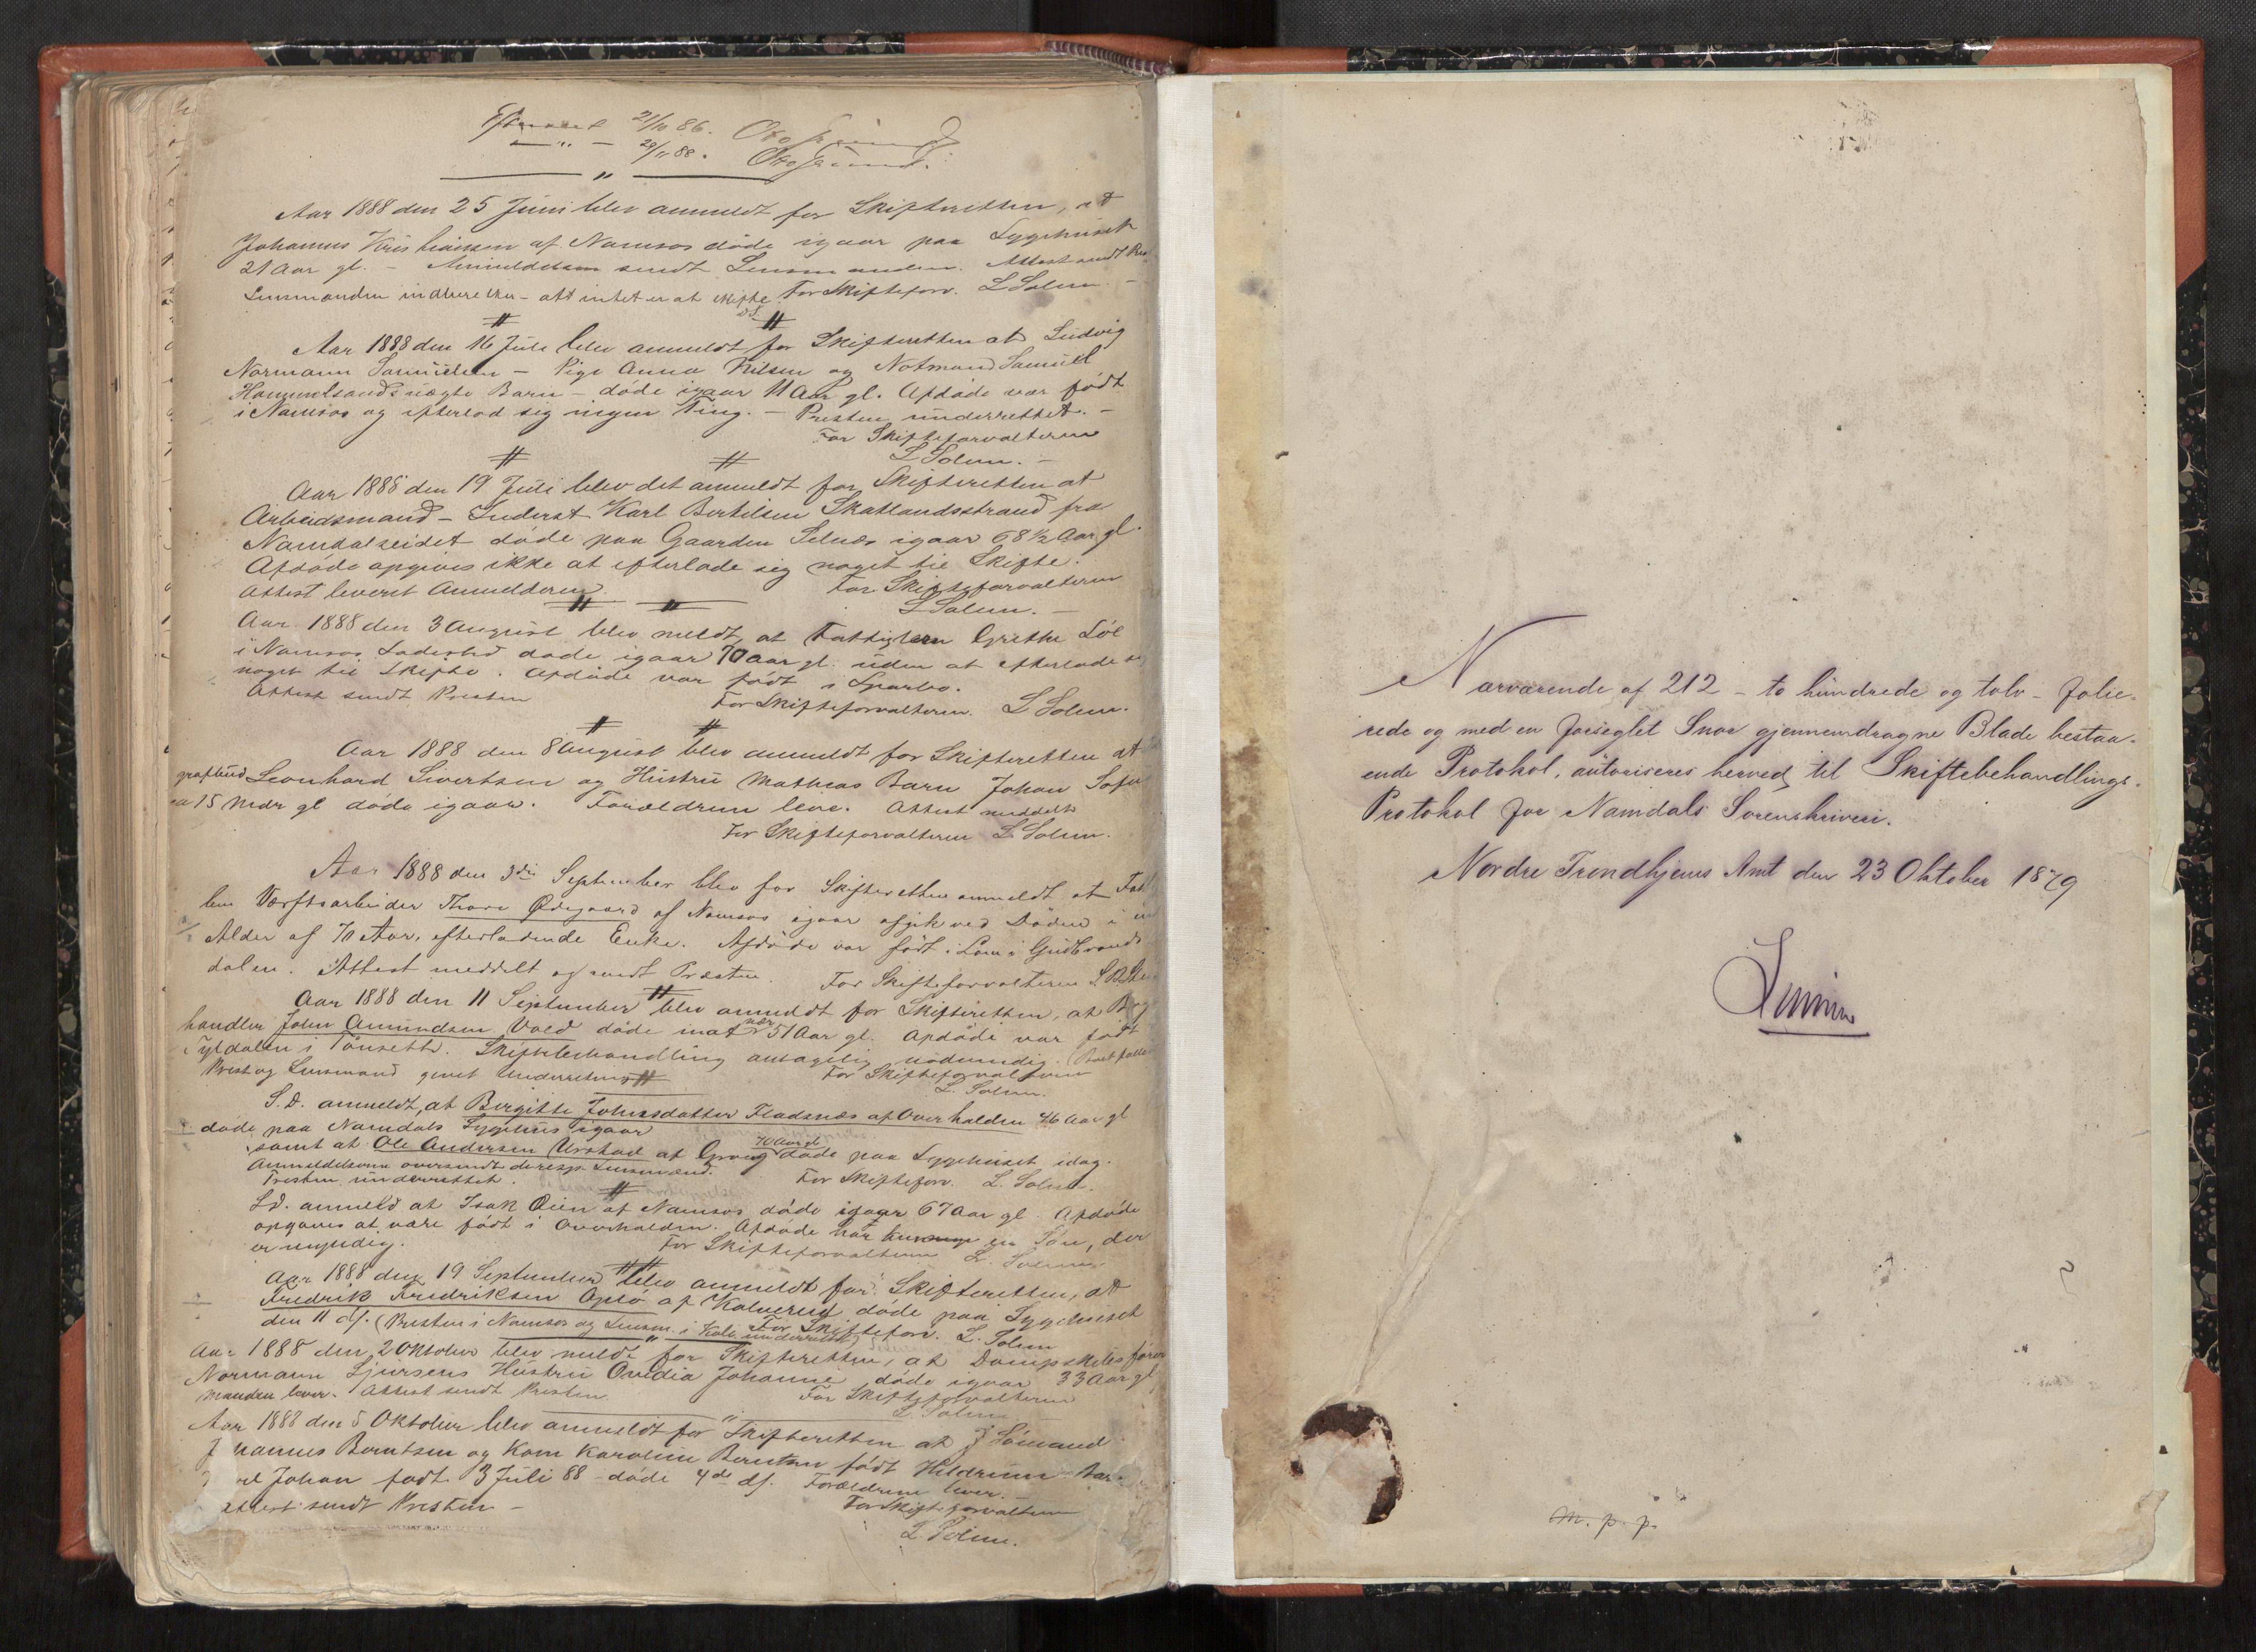 21/10 86.
— " — 29/11 88.
Aar 1888 den 25 Juni blev anmeldt for Skifteretten, at
Johannes Kristiansen af Namsos døde igaar paa Sygehuset
21 Aar gl. – Anmeldelsen sendt Lensmanden. Attest sendt
Lensmanden indberetter – at intet er at skifte. For Skifteforv. L Solem. –
Aar 1888 den 16 Juli blev anmeldt for Skifteretten at Ludvig
Normann Samuelsen – Pige Anna Nilsen og Notmand Samuel
Hammelsands uægte Barn – døde igaar 11 Aar gl. Afdøde var født
i Namsos og efterlod sig ingen Ting. – Presten underrettet. –
For Skifteforvalteren
L Solem. –
Aar 1888 den 19 Juli blev det anmeldt for Skifteretten at
Arbeidsmand – Inderst Karl Bertilsen Skatlandsstrand fra
Namdalseidet døde paa Gaarden Selnæs igaar 68 1/2 Aar gl.
Afdøde opgives ikke at efterlade sig noget til Skifte.
Attest leveret Anmelderen. For Skifteforvalteren
L Solem. –
Aar 1888 den 3 August blev meldt, at Fattiglem Grethe
i Namsos Ladested døde igaar 70 Aar gl. uden at efterlade
noget til Skifte. Afdøde var født i Sparbo.
Attest sendt Presten For Skifteforvalteren. L Solem.
Aar 1888 den 8 August blev anmeldt for Skifteretten at
grafbud Leonhard Sivertsen og Hustru Matheas Barn Johan
15 Mdr gl døde igaar. Forældrene leve. Attest meddelt
For Skifteforvalteren L Solem.
Aar 1888 den 3die September blev for Skifteretten anmeldt at
lem Værftsarbeider Thore Ødegaard af Namsos igaar afgik ved Døden i
Alder af 70 Aar, efterladende Enke. Afdøde var født i Lom i Gudbrands
dalen. Attest meddelt og sendt Præsten. For Skifteforvalteren
Aar 1888 den 11 September blev anmeldt for Skifteretten, at
handler John Amundsen Vold døde inat nær 51 Aar gl. Afdøde var født
i Tyldalen i Tønsett. Skiftebehandling antagelig nødvendig.
Prest og Lensmand givet Underretning For Skifteforvalteren
L. Solem.
S. D. anmeldt, at Bergitte Johnsdatter Fladsnæs af Overhalden 46 Aar gl
døde paa Namdals Sygehus igaar
samt at Ole Andersen Urstad af Grong 70 Aar gl døde paa Sygehuset idag.
Anmeldelserne oversendt de resp. Lensmænd.
Presten underrettet. For Skifteforv. L. Solem.
S. D. anmeldt at Isak Øien af Namsos døde igaar 67 Aar gl. Afdøde
opgaves at være født i Overhalden. Afdøde har en Søn, der
er myndig. For Skifteforvalteren L. Solem
Aar 1888 den 19 September blev anmeldt for Skifteretten, at
Fredrik Fredriksen Oplø af Kolvereid døde paa Sygehuset
den 11 ds. (Presten i Namsos og Lensm. i Kolv. underrettet) For Skifteforv. L. Solem
Aar 1888 den 2 Oktober blev meldt for Skifteretten, at Dampskibsfører
Normann Sjursens Hustru Ovidia Johanne døde igaar 33 Aar gl
Manden lever. Attest sendt Presten. For Skifteforvalteren
L. Solem
Aar 1888 den 5 Oktober blev anmeldt for Skifteretten at Sømand
Berntsen og Kone Karoline Berntsen født Hildrum
Johan født 3 Juli 88 – døde 4de ds. Forældrene lever. –
sendt Presten – For Skifteforvalteren
L Solem.
Nærværende af 212 – to hundrede og tolv – folie-
rede og med en forseglet Snor gjennemdragne Blade bestaa-
ende Protokol, autoriseres herved til Skiftebehandlings-
Protokol for Namdals Sorenskriveri.
Nordre Trondhjems Amt den 23 Oktober 1879
m. p. p.